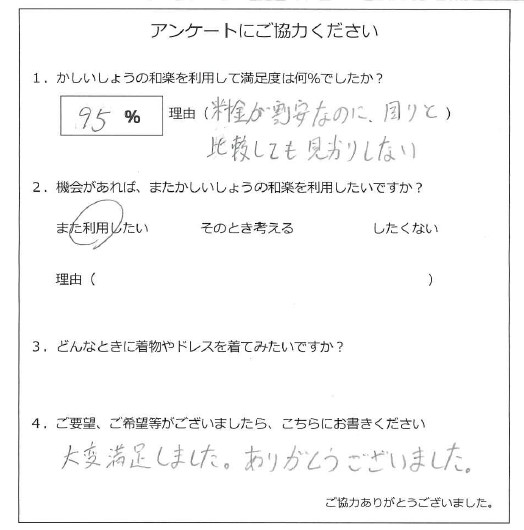 アンケートにご協力ください
1．かしいしょうの和楽を利用して満足度は何%でしたか？
95 % 理由（料金が割安なのに、周りと）
比較しても見劣りしない
2．機会があれば、またかしいしょうの和楽を利用したいですか？
また利用したい そのとき考える したくない
理由（ ）
3．どんなときに着物やドレスを着てみたいですか？
4．ご要望、ご希望等がございましたら、こちらにお書きください
大変満足しました。ありがとうございました。
ご協力ありがとうございました。